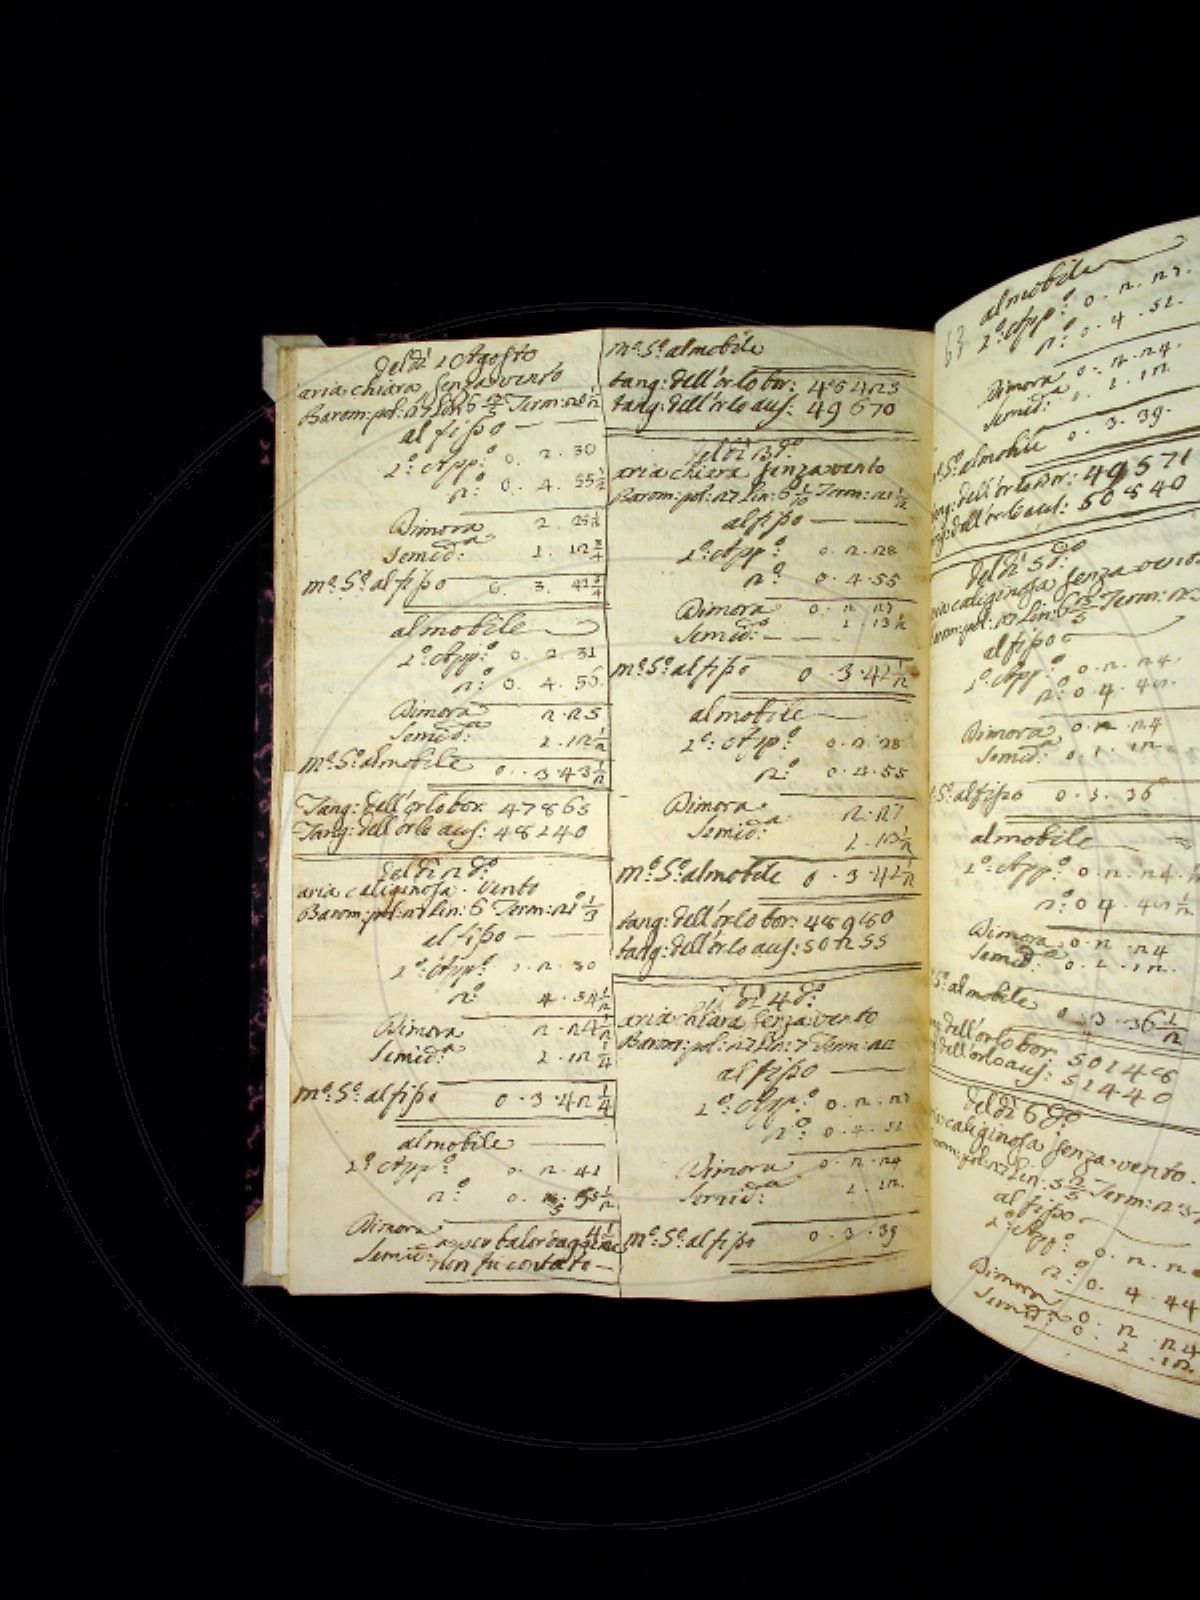 Del dì 1 Agosto
aria chiara senza vento
Barom: pol: 27 Lin: 6 Term:
al fisso
1º: App: 0. 2. 30
2º: 0. 4. 55 1/2
Dimora 2. 25 1/2
Semid: 1. 12 3/4
mº. Sº. al fisso 0. 3. 42 3/4
al mobile
1º: App: 0. 2. 31
2º: 0. 4. 56
Dimora 2. 25
Semid: 1. 12 1/2
mº. Sº. al mobile 0. 3. 43 1/2
Tang: dell'orlo bor: 47865
Tang: dell'orlo aus: 48240
Del dì 2 dº:
aria caliginosa. vento
Barom: pol: 27 Lin: 6 Term: 21 1/3
al fisso
1º: App: 0. 2. 30
2º: 4. 54 1/2
Dimora 2. 24 1/2
Semid: 1. 12 1/4
mº. Sº. al fisso 0. 3. 42 1/4
al mobile
1º App: 0. 2. 41
2º: 0.
Dimora per balordaggine
Semid: non fu contato
mº. Sº. al mobile
tang: dell'orlo bor:
tang: dell'orlo aus: 49670
del dì 3 dº:
aria chiara senza vento
Barom: pol: 27 Lin: 6 Term: 21 1/2
al fisso
1º: App: 0. 2. 28
2º: 0. 4. 55
Dimora 0. 2. 27
Semid: 1. 13 1/2
mº. Sº. al fisso 0. 3. 41 1/2
al mobile
1º: App: 0. 2. 28
2º: 0. 4. 55
Dimora 2. 27
Semid: 1. 13 1/2
mº. Sº. al mobile 0. 3. 41 1/2
tang: dell'orlo bor:
tang: dell'orlo aus: 50255
dì 4 dº:
aria chiara senza vento
Barom: pol: 27 Lin: 7 Term: 22
al fisso
1º: App: 0. 2. 27
2º: 0. 4. 51
Dimora 0. 2. 24
Semid: 1. 12
mº. Sº. al fisso 0. 3. 39
63
al mobile
1º: App: 0. 2. 27
2º: 0. 4. 51
Dimora 0. 2. 24
Semid: 0. 1. 12
Sº. al mobile 0. 3. 39
dell'orlo bor: 49571
dell'orlo aus: 50840
del dì 5 dº
caliginosa senza vento
pol: 27 Lin: 6 2/5 Term:
al fisso
1º: App: 0. 2. 24
2º: 0. 4. 48
Dimora 0. 2. 24
Semid: 0. 1. 12
Sº. al fisso 0. 3. 36
al mobile
1º: App: 0. 2. 24
2º: 0 4. 48 1/2
Dimora 0. 2. 24
Semid: 0. 1. 12
Sº. al mobile 0. 3. 36 1/2
dell'orlo bor:
dell'orlo aus: 51440
del dì 6 dº
caliginosa senza vento.
pol: 27 Lin: 5 2/5 Term:
al fisso
1º: App: 0. 2.
2º: 0. 4. 44
Dimora 0. 2. 24
Semid: 0. 1. 12